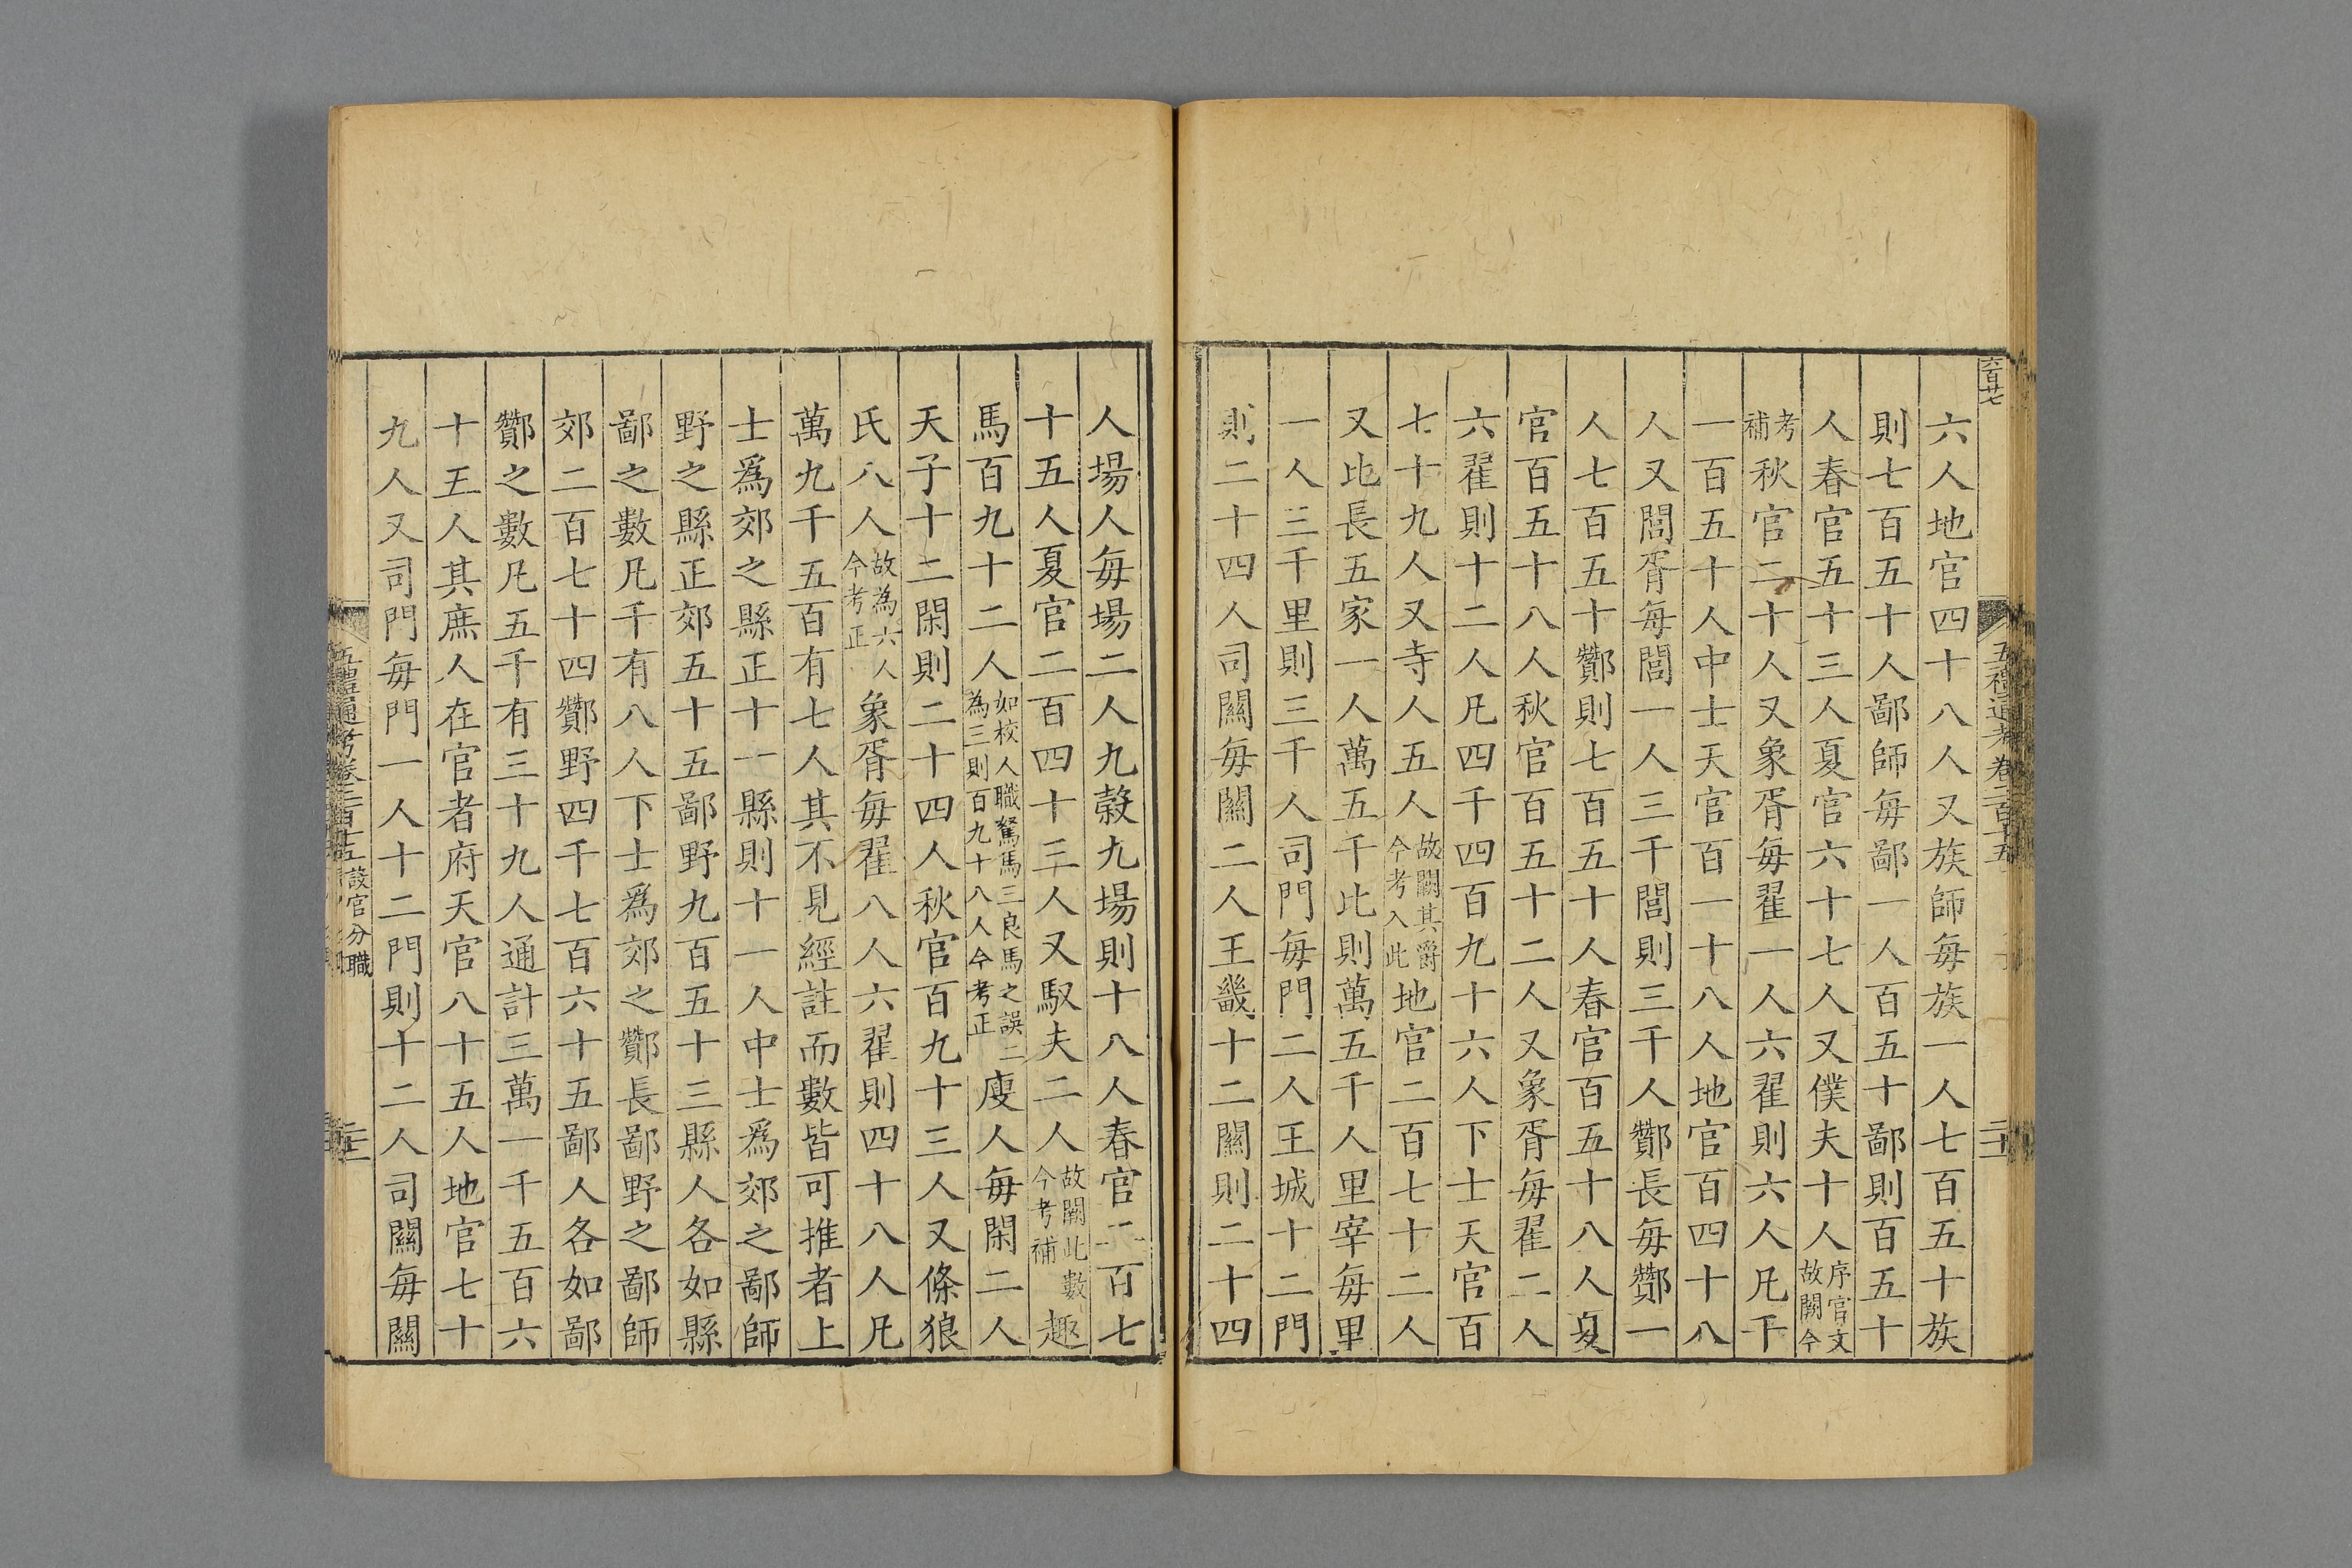 六百廿七
五禮通考卷二百十五
二十
六人地官四十八人又族師每族一人七百五十族
則七百五十人鄙師每鄙一人百五十鄙則百五十
人春官五十三人夏官六十七人又僕夫十人序官文故闕今
考補秋官二十人又象胥每翟一人六翟則六人凡千
一百五十人中士天官百一十八人地官百四十八
人又閭胥每閭一人三千閭則三千人酇長每酇一
人七百五十酇則七百五十人春官百五十八人夏
官百五十八人秋官百五十二人又象胥每翟二人
六翟則十二人凡四千四百九十六人下士天官百
七十九人又寺人五人故闕其爵今考入此地官二百七十二人
又比長五家一人萬五千比則萬五千人里宰每里
一人三千里則三千人司門每門二人王城十二門
則二十四人司關每關二人王畿十二關則二十四
人場人每場二人九穀九場則十八人春官二百七
十五人夏官二百四十三人又馭夫二人故闕此數今考補趣
馬百九十二人如校人職駑馬三良馬之誤二為三則百九十八人今考正廋人每閑二人
天子十二閑則二十四人秋官百九十三人又條狼
氏八人故為六人今考正象胥每翟八人六翟則四十八人凡
萬九千五百有七人其不見經註而數皆可推者上
士爲郊之縣正十一縣則十一人中士爲郊之鄙師
野之縣正郊五十五鄙野九百五十三縣人各如縣
鄙之數凡千有八人下士爲郊之酇長鄙野之鄙師
郊二百七十四酇野四千七百六十五鄙人各如鄙
酇之數凡五千有三十九人通計三萬一千五百六
十五人其庶人在官者府天官八十五人地官七十
九人又司門每門一人十二門則十二人司關每關
五禮通考卷二百十五 設官分職
二十一